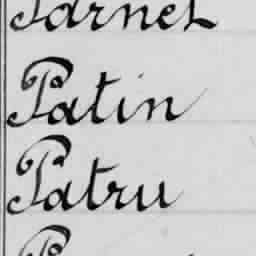 Parnet
Patin
Patru